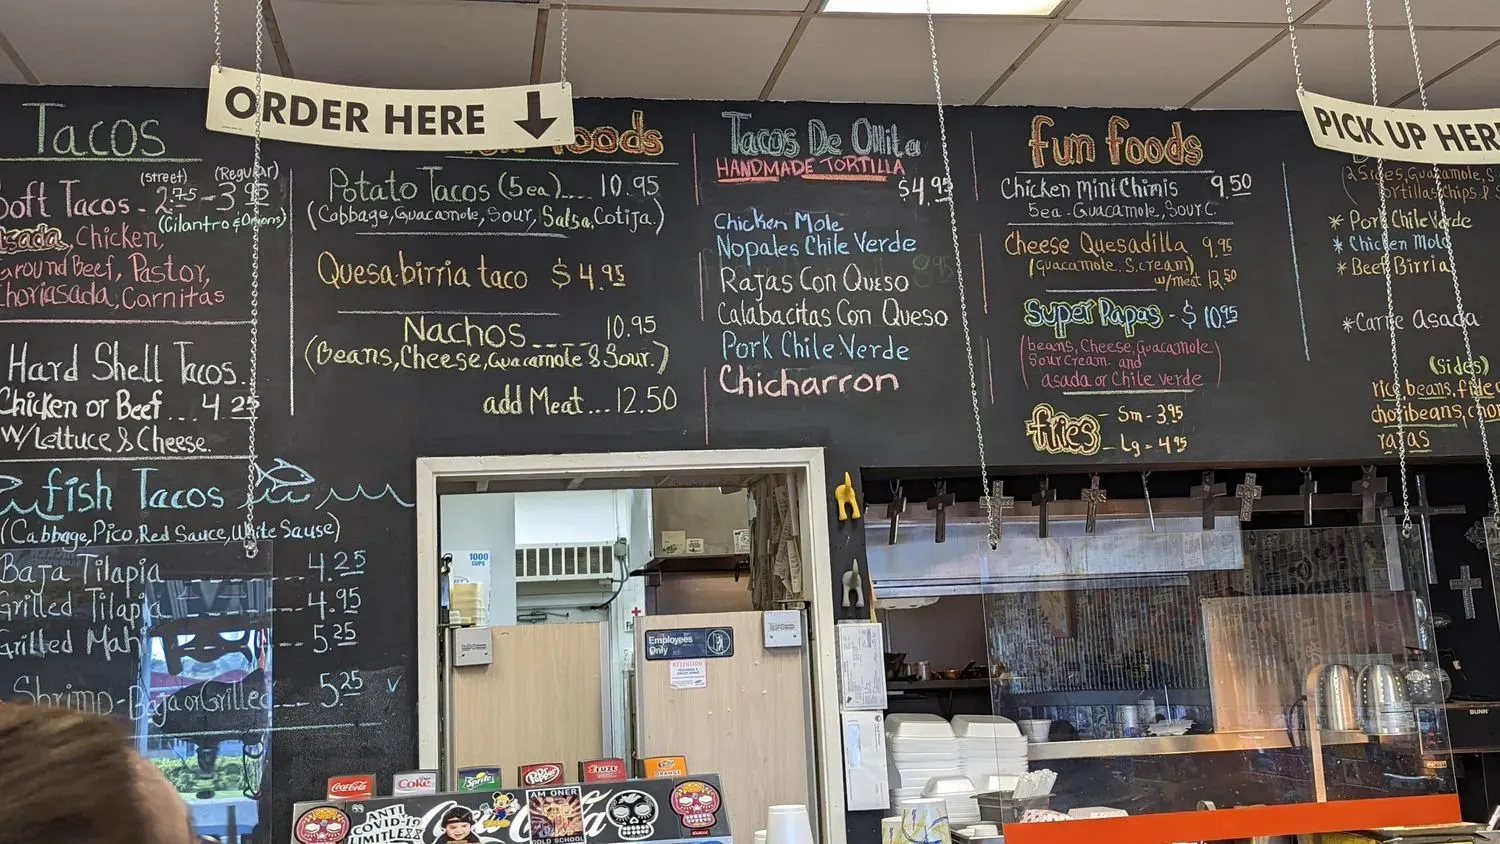 ORDER HERE
PICK UP HER
Tacos
(street) (Regular)
Soft Tacos - 2.75 - 3.95
(Cilantro & Onions)
Asada, Chicken,
Ground Beef, Pastor,
Choriasada, Carnitas
Hard Shell Tacos.
Chicken or Beef... 4.25
w/Lettuce & Cheese.
fish Tacos
(Cabbage, Pico, Red Sauce, White Sause)
Baja Tilapia ------- 4.25
Grilled Tilapia ---- 4.95
Grilled Mahi ---- 5.25
Shrimp - Baja or Grilled --- 5.25
foods
Potato Tacos (5 ea).... 10.95
(Cabbage, Guacamole, Sour, Salsa, Cotija.)
Quesabirria taco $4.95
Nachos ---- 10.95
(Beans, Cheese, Guacamole & Sour.)
add Meat... 12.50
Tacos De Ollita
HANDMADE TORTILLA
$4.95
Chicken Mole
Nopales Chile Verde
Rajas Con Queso
Calabacitas Con Queso
Pork Chile Verde
Chicharron
fun foods
Chicken mini Chimis 9.50
5ea - Guacamole, Sour C.
Cheese Quesadilla 9.95
(guacamole. S.cream)
w/meat 12.50
Super Papas - $10.95
(beans, Cheese, Guacamole
Sour Cream and
asada or Chile verde)
fries - Sm - 3.95
- Lg = 4.95
(2 Sides, Guacamole, S
tortillas Chips &
* Pork Chile Verde
* Chicken Mole
* Beef Birria
* Carne Asada
(Sides)
rice, beans, fide
choribeans, chor
rajas
1000
CUPS
Employees
Only
ATTENTION
Coca-Cola
Coke
Sprite
Dr Pepper
FUZE
ORANGE
ANTI
COVID-19
LIMITLEXX
Coca-Cola
I AM ONER
OLD SCHOOL
BUNN